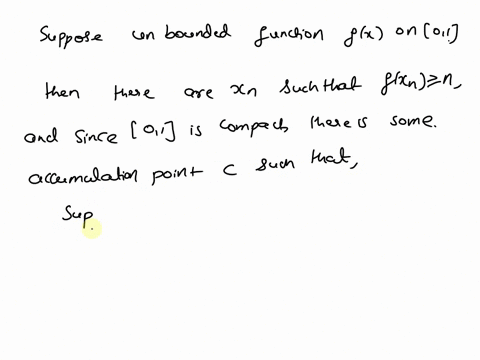 Suppose un bounded function f(x) on [0,1]
then there are xn such that f(xn) ≥ n,
and since [0,1] is compach there is some.
accumulation point C such that,
Sup